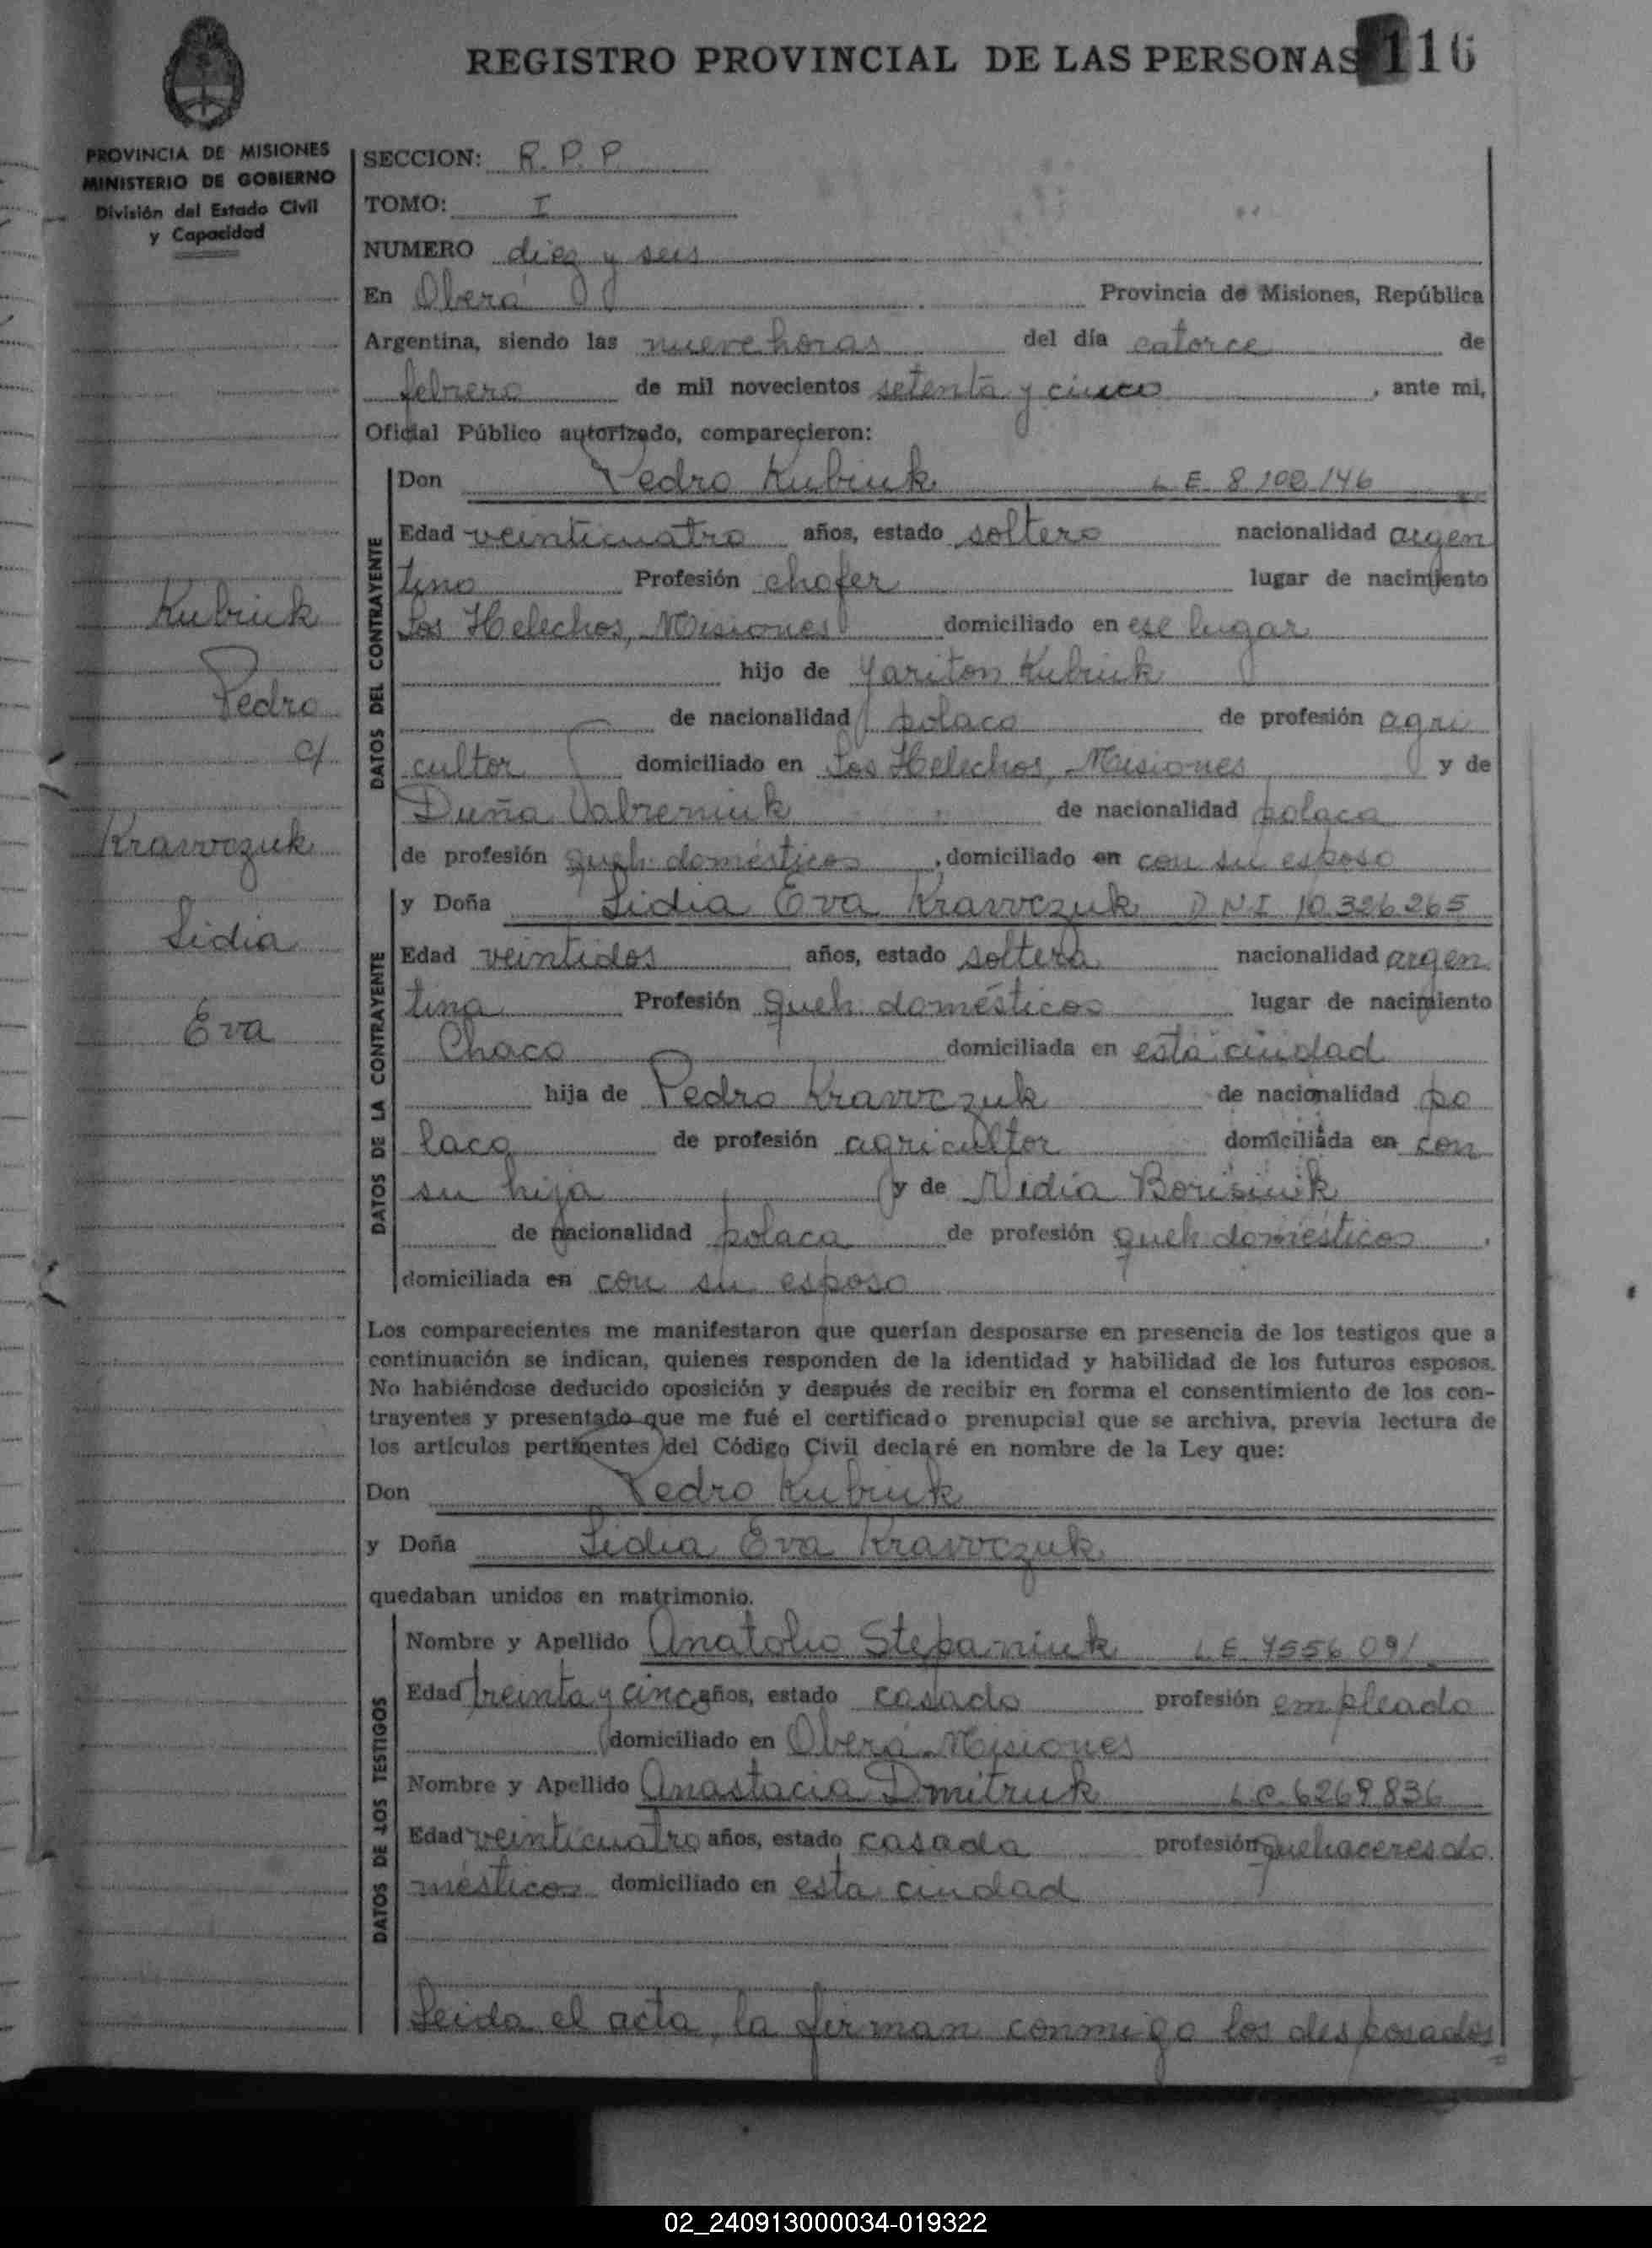 REGISTRO PROVINCIAL DE LAS PERSONAS 116
PROVINCIA DE MISIONES
MINISTERIO DE GOBIERNO
División del Estado Civil
y Capacidad
Kubiuk
Pedro
c/
Kravvczuk
Lidia
Eva
SECCION: R.P.P.
TOMO: I
NUMERO diez y seis
En Oberá Provincia de Misiones, República
Argentina, siendo las nueve horas del día catorce de
febrero de mil novecientos setenta y cinco, ante mi,
Oficial Público autorizado, comparecieron:
DATOS DEL CONTRAYENTE
Don Pedro Kubiuk L.E. 8.108.146
Edad veinticuatro años, estado soltero nacionalidad argen
tino Profesión chofer lugar de nacimiento
Los Helechos, Misiones domiciliado en ese lugar
hijo de Yariton Kubiuk
de nacionalidad polaco de profesión agri
cultor domiciliado en Los Helechos, Misiones y de
Duña de nacionalidad polaca
de profesión queh. domésticos, domiciliado en con su esposo
DATOS DE LA CONTRAYENTE
y Doña Lidia Eva Kravvczuk D.N.I 10.326.265
Edad veintidos años, estado soltera nacionalidad argen
tina Profesión queh. domésticos lugar de nacimiento
Chaco domiciliada en esta ciudad
hija de Pedro Kravvczuk de nacionalidad po
laca de profesión agricultor domiciliada en con
su hija y de Nidia Borisiuik
de nacionalidad polaca de profesión queh. domésticos,
domiciliada en con su esposo
Los comparecientes me manifestaron que querían desposarse en presencia de los testigos que a
continuación se indican, quienes responden de la identidad y habilidad de los futuros esposos.
No habiéndose deducido oposición y después de recibir en forma el consentimiento de los con-
trayentes y presentado que me fué el certificado prenupcial que se archiva, previa lectura de
los artículos pertinentes del Código Civil declaré en nombre de la Ley que:
Don Pedro Kubiuk
y Doña Lidia Eva Kravvczuk
quedaban unidos en matrimonio.
DATOS DE LOS TESTIGOS
Nombre y Apellido Anatolio Stepaniuk L.E. 7556.091
Edad treinta y cinco años, estado casado profesión empleado
domiciliado en Oberá Misiones
Nombre y Apellido Anastacia Dmitruk L.C. 6269836
Edad veinticuatro años, estado casada profesión quehaceres do
mésticos domiciliado en esta ciudad
Leida el acta, la firman conmigo los desposados
02_240913000034-019322